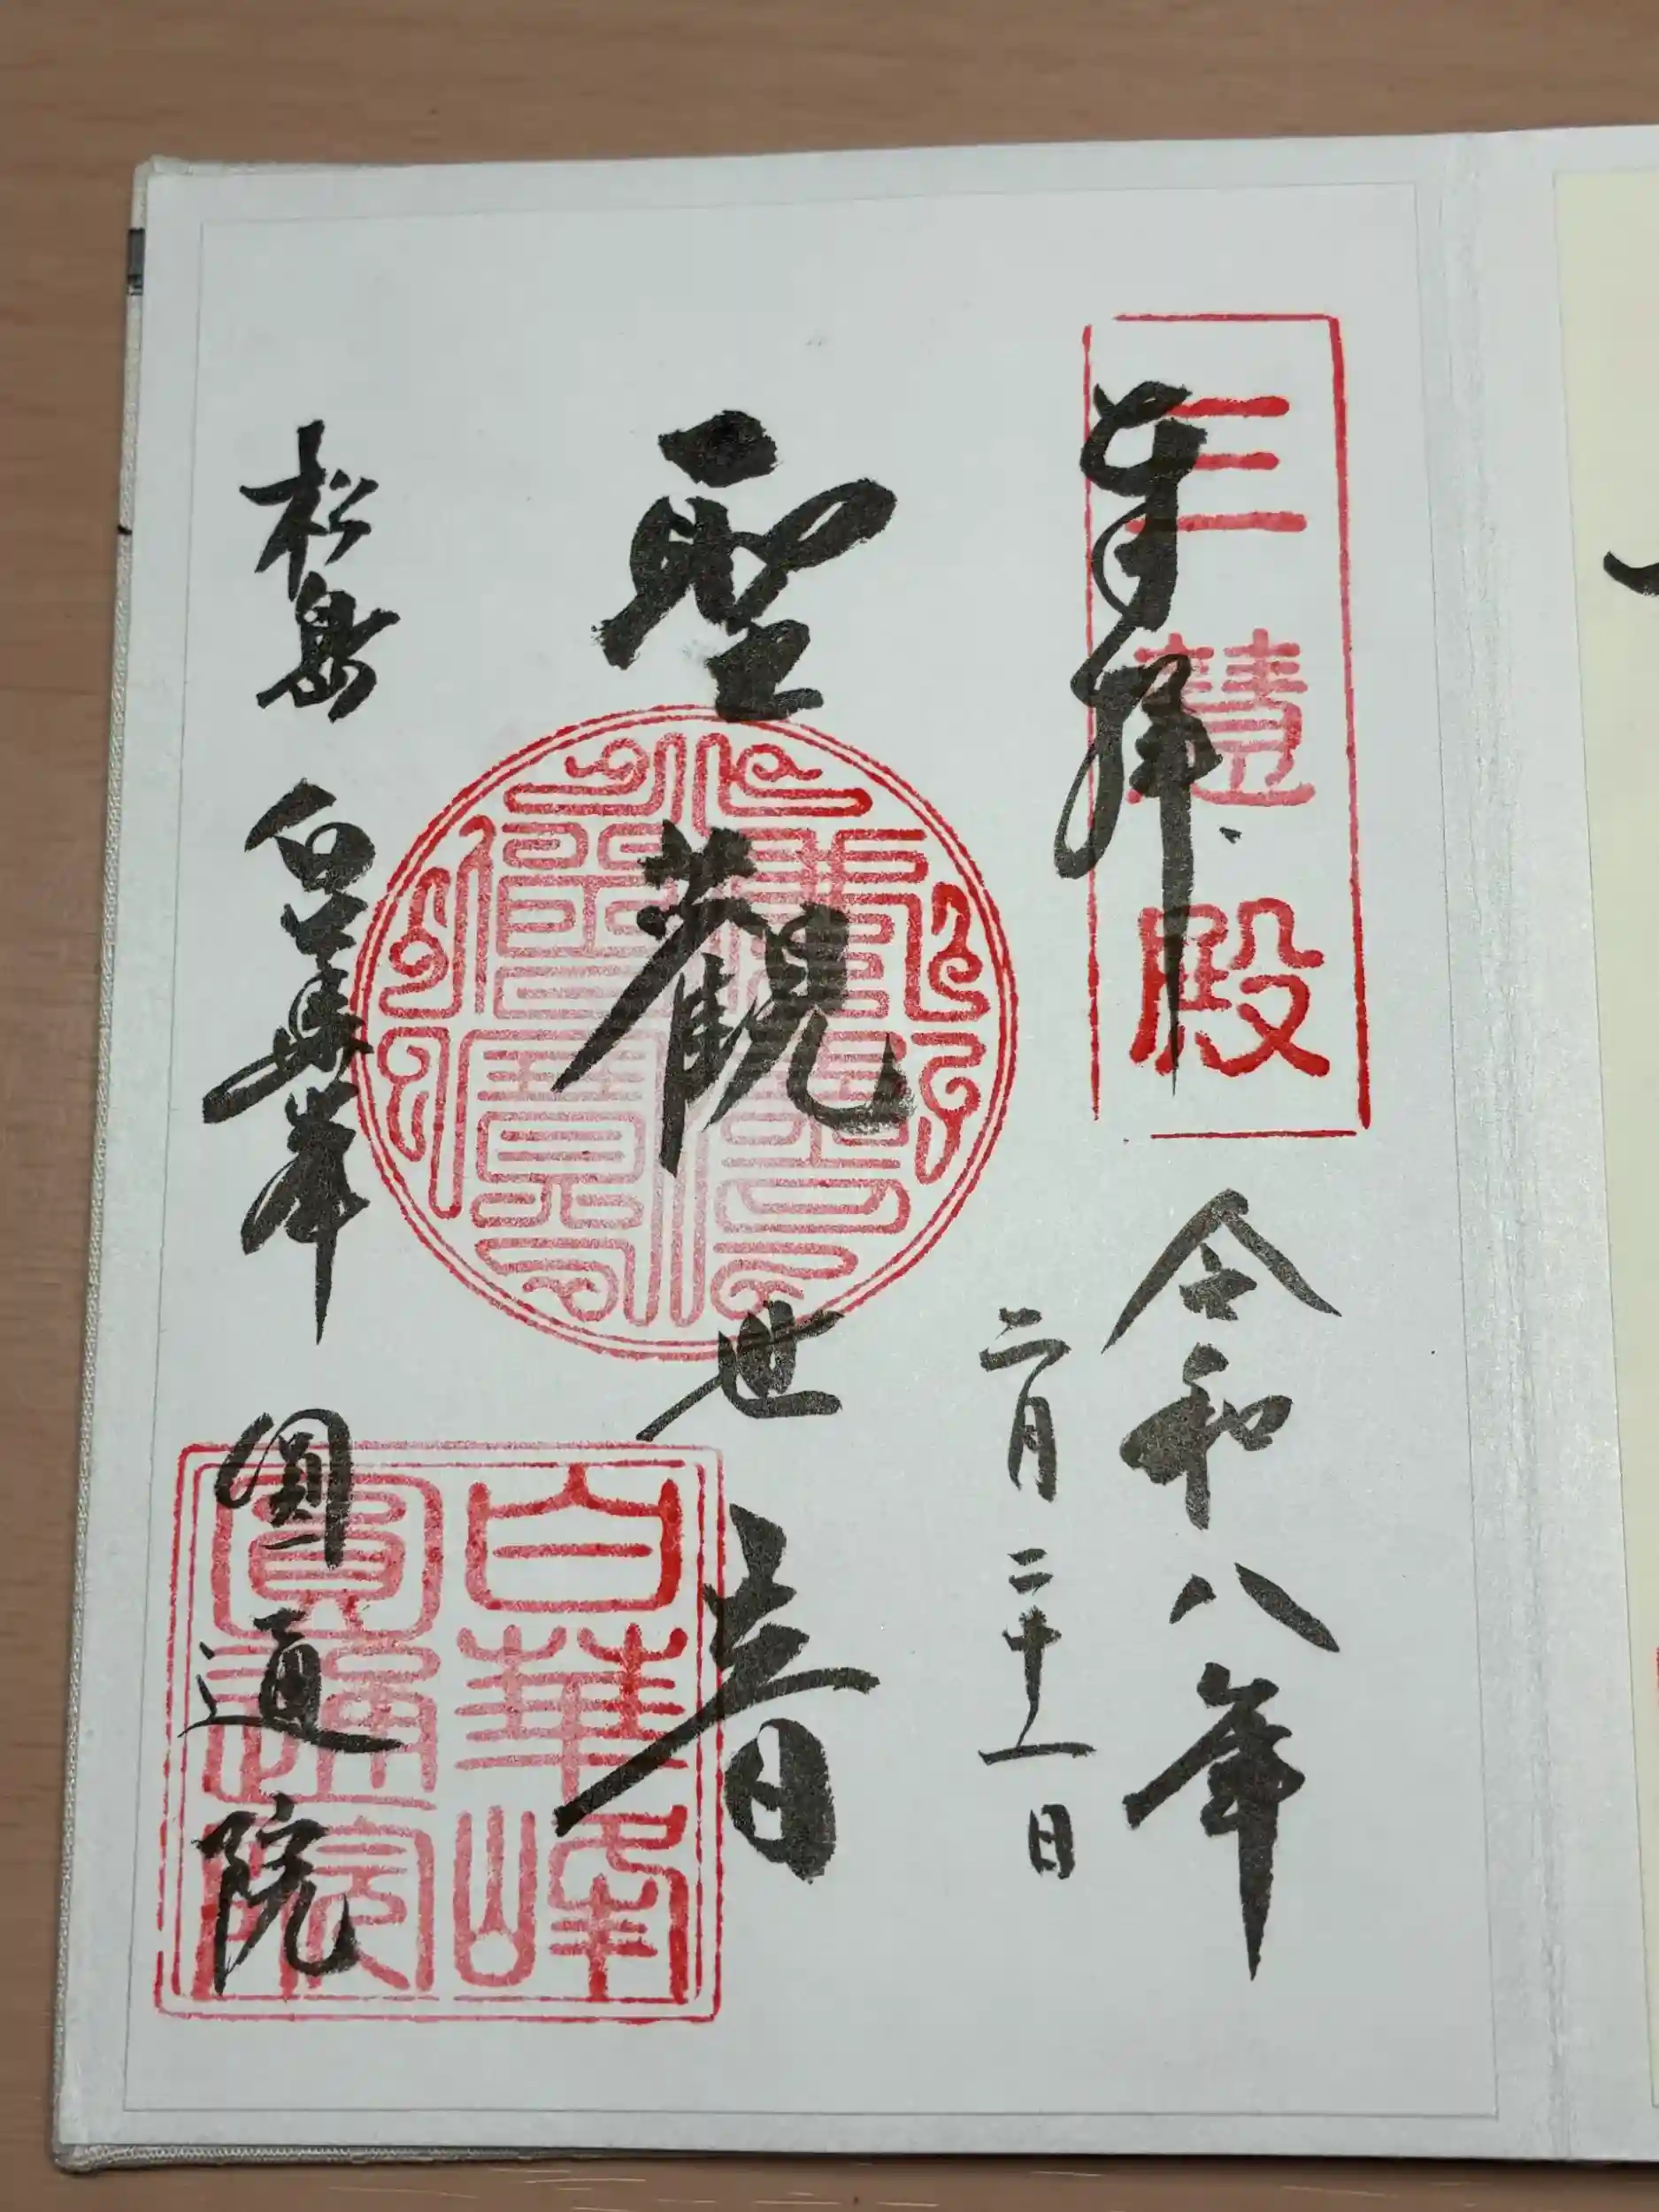 奉拝
三慧殿
令和八年
二月二十一日
聖観世音
松島 白華峰 圓通院
白華峰
圓通院